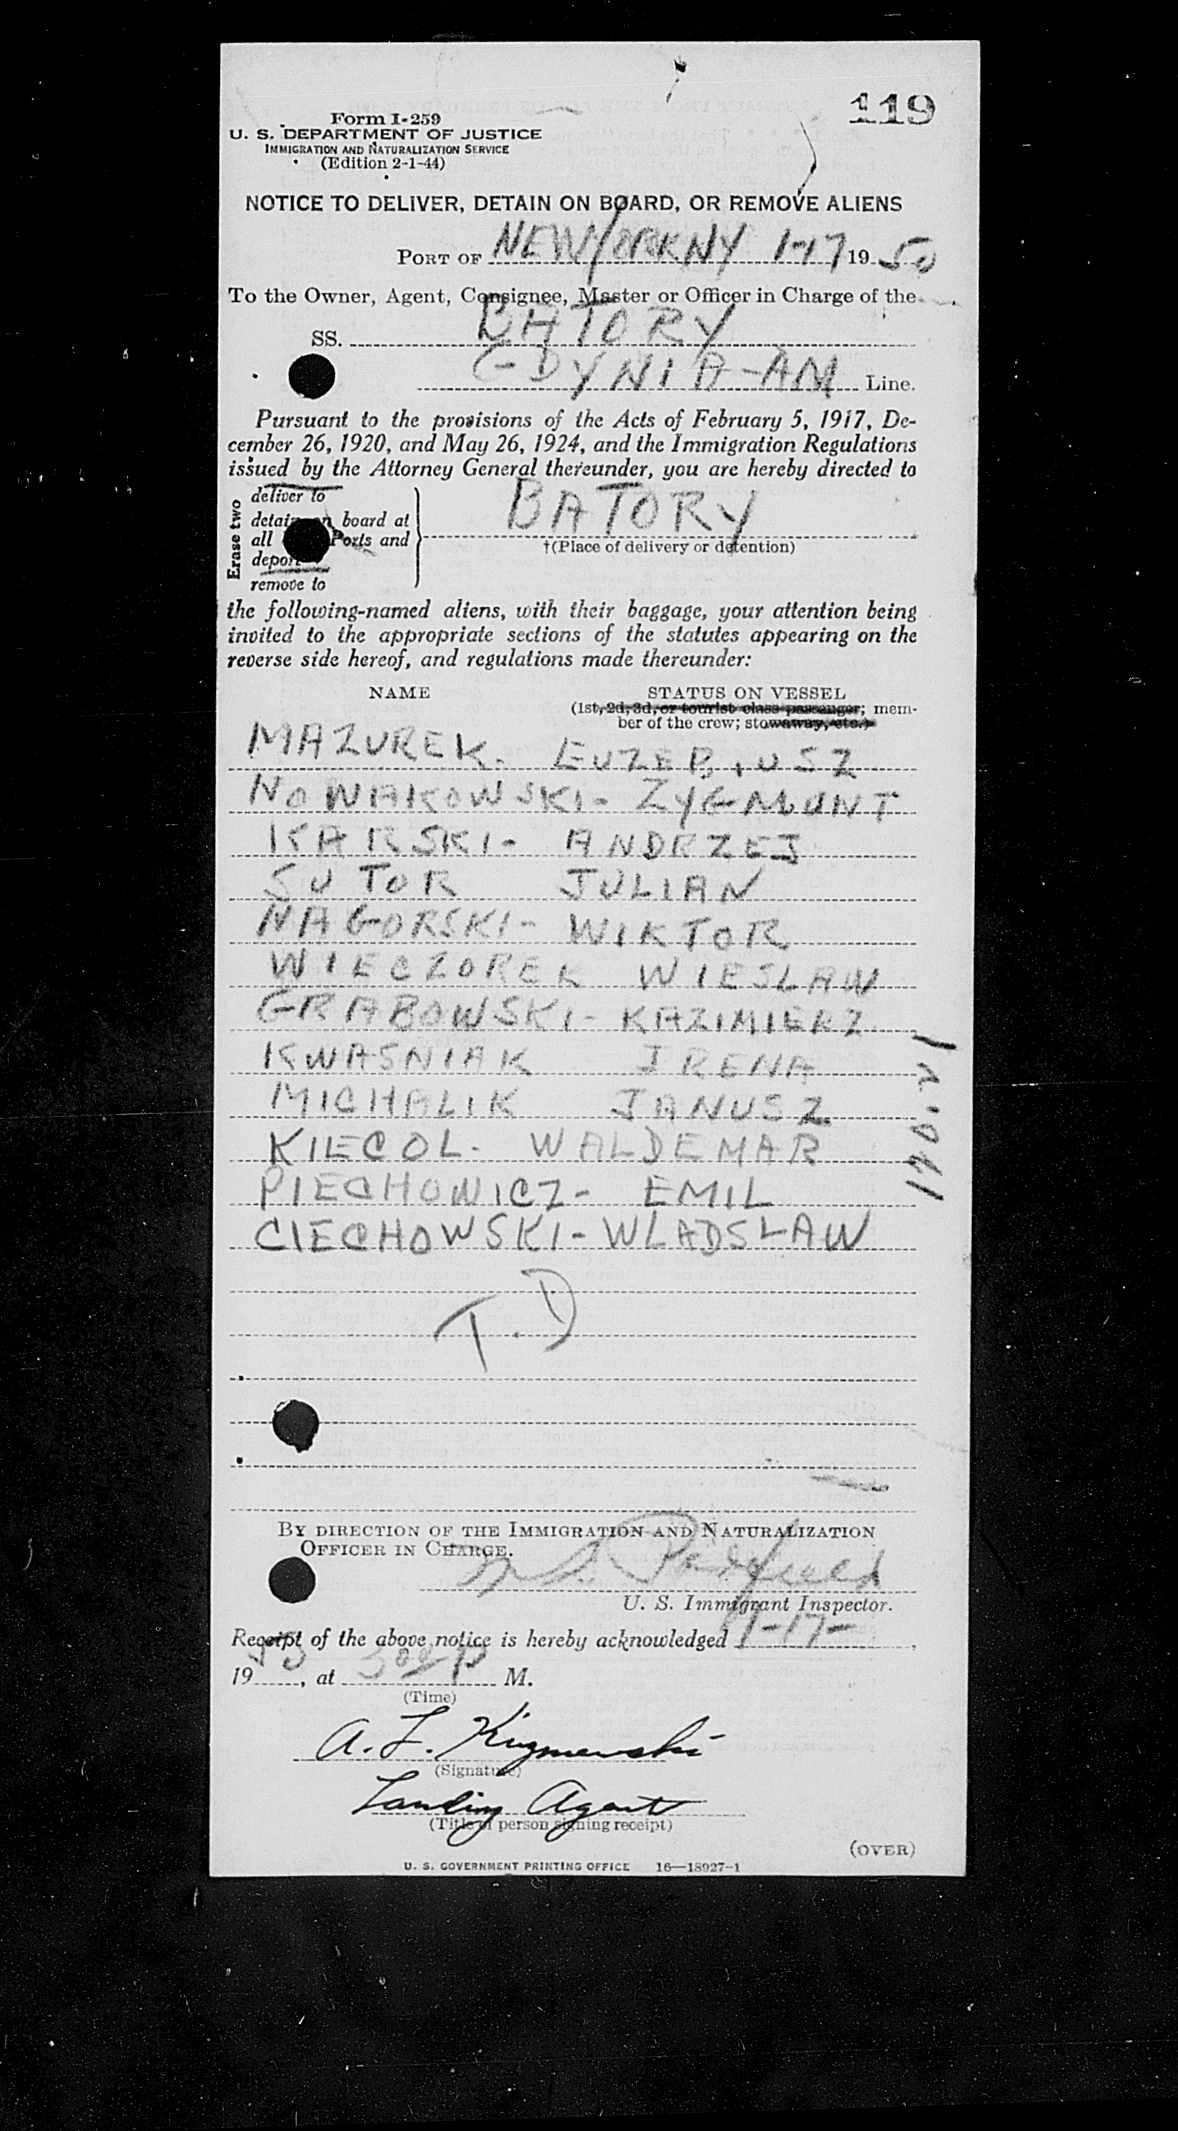 119
Form I-259
U. S. DEPARTMENT OF JUSTICE
IMMIGRATION AND NATURALIZATION SERVICE
(Edition 2-1-44)
NOTICE TO DELIVER, DETAIN ON BOARD, OR REMOVE ALIENS
PORT OF NEW YORK NY 1-17 1950
To the Owner, Agent, Consignee, Master or Officer in Charge of the
SS. BATORY
GDYNIA-AM Line.
Pursuant to the provisions of the Acts of February 5, 1917, De-
cember 26, 1920, and May 26, 1924, and the Immigration Regulations
issued by the Attorney General thereunder, you are hereby directed to
Erase two
deliver to
detain on board at
all Ports and
deport
remove to
BATORY
†(Place of delivery or detention)
the following-named aliens, with their baggage, your attention being
invited to the appropriate sections of the statutes appearing on the
reverse side hereof, and regulations made thereunder:
NAME STATUS ON VESSEL
(1st, 2d, 3d, or tourist class passenger; mem-
ber of the crew; stowaway, etc.)
MAZUREK. EUZEBIUSZ
NOWAKOWSKI- ZYGMUNT
KARSKI- ANDRZEJ
SUTOR JULIAN
NAGORSKI- WIKTOR
WIECZOREK WIESLAW
GRABOWSKI- KAZIMIERZ
KWASNIAK IRENA
MICHALIK JANUSZ
KIECOL. WALDEMAR
PIECHOWICZ- EMIL
CIECHOWSKI- WLADSLAW
T.D
BY DIRECTION OF THE IMMIGRATION AND NATURALIZATION
OFFICER IN CHARGE.
U. S. Immigrant Inspector.
Receipt of the above notice is hereby acknowledged 1-17-,
1950, at 300 P M.
(Time)
A. L.
(Signature)
Landing Agent
(Title of person signing receipt)
(OVER)
U. S. GOVERNMENT PRINTING OFFICE 16—18927-1